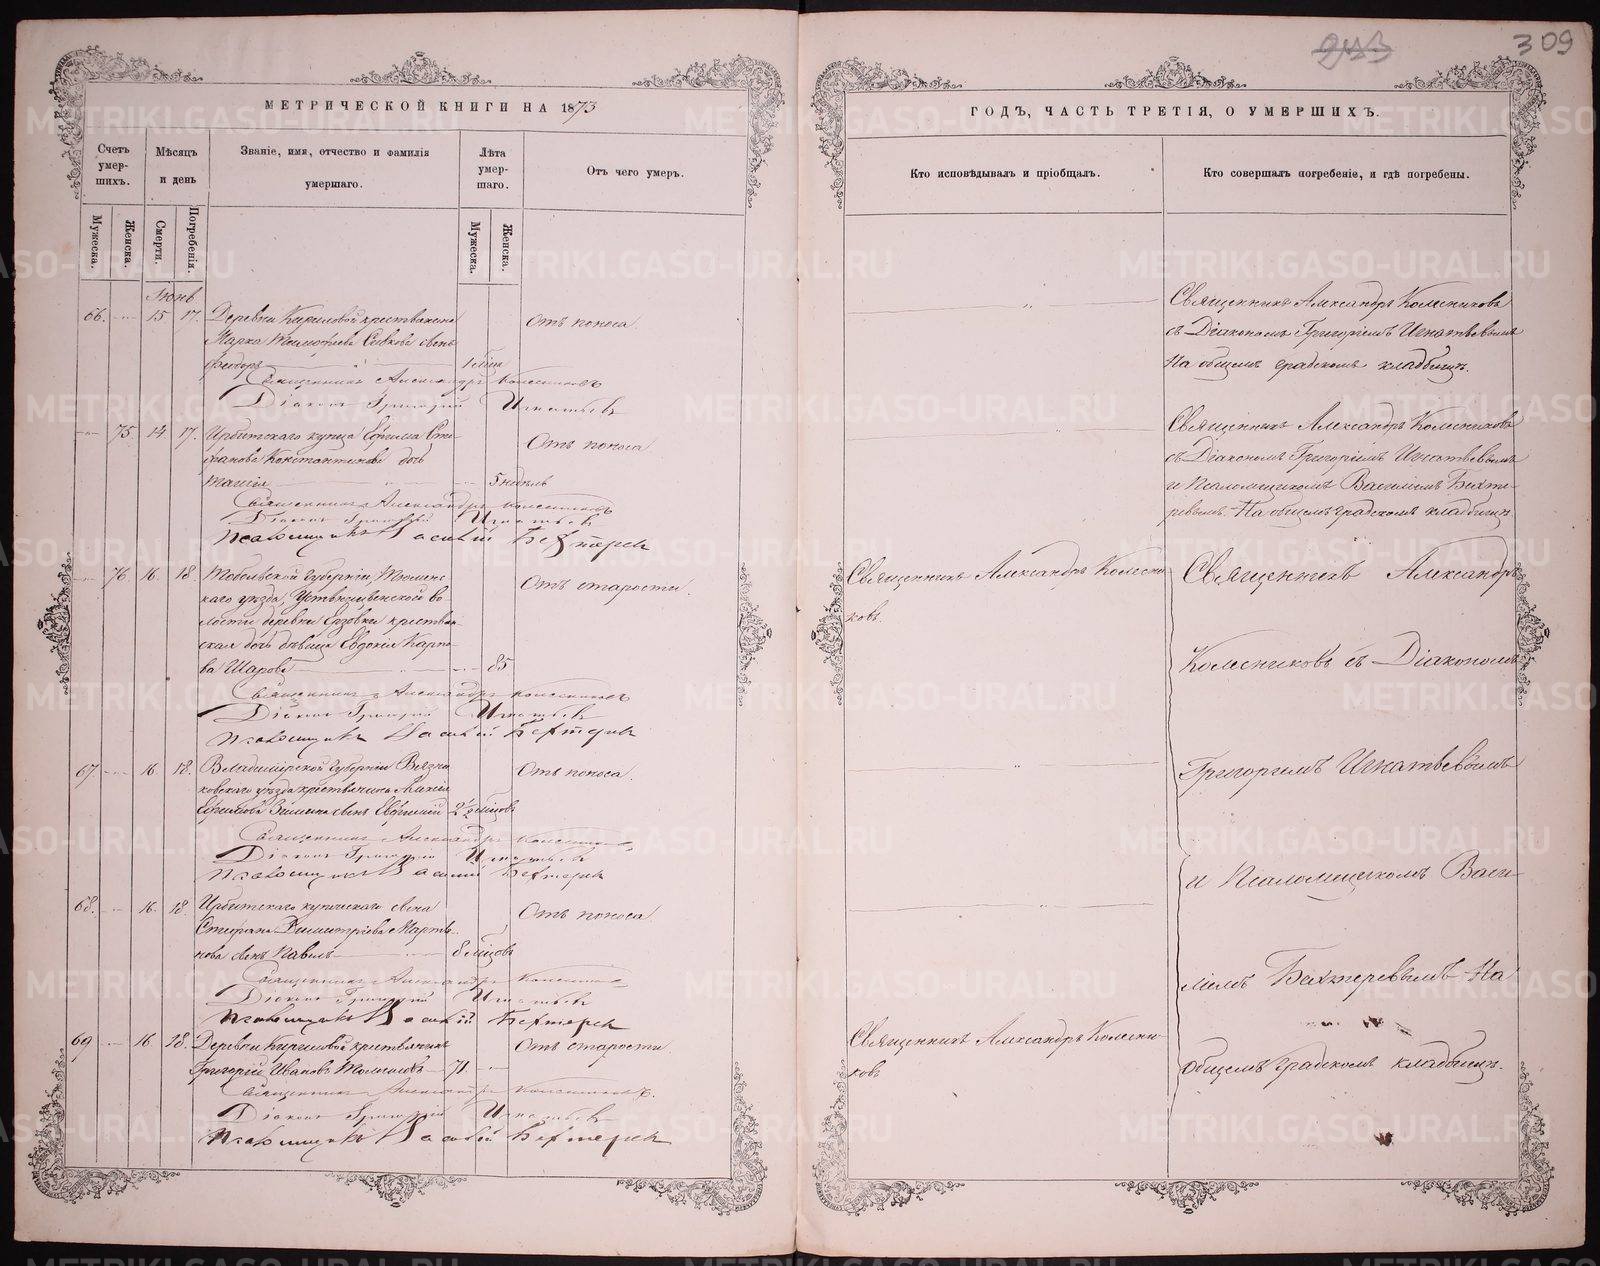 309
МЕТРИЧЕСКОЙ КНИГИ НА 1873
ГОДЪ, ЧАСТЬ ТРЕТІЯ, О УМЕРШИХЪ.
Счетъ умер-шихъ.
Мѣсяцъ и день
Званіе, имя, отчество и фамилія
умершаго.
Лѣта умер-шаго.
Отъ чего умеръ.
Кто исповѣдывалъ и пріобщалъ.
Кто совершалъ погребеніе, и гдѣ погребены.
Мужеска.
Женска.
Смерти.
Погребенія.
Мужеска.
Женска.
66. 15 17. Деревни крестьянина
Марка Тимофеева сынъ
Ѳеодоръ
Отъ поноса.
Священникъ Александръ Колесниковъ
Діаконъ Григорій Игнатьевъ
Священникъ Александръ Колесниковъ
съ Діакономъ Григоріемъ Игнатьевымъ
На общемъ градскомъ кладбищѣ.
75 14 17. Ирбитскаго купца Ефима Сте-
фанова Константинова дочь
5 недѣль
Отъ поноса
Священникъ Александръ Колесниковъ
Діаконъ Григорій Игнатьевъ
Псаломщикъ Василій Бехтерев
Священникъ Александръ Колесниковъ
съ Діакономъ Григоріемъ Игнатьевымъ
и Псаломщикомъ Василіемъ Бехте-
ревымъ. На общемъ градскомъ кладбищѣ
76 16 18 Тобольской губерніи, Тюменс
каго уѣзда, во-
лости деревни крестьян-
ская дочь дѣвица Евдокія Карпо-
ва Шарова 85
Отъ старости.
Священникъ Александръ Колесниковъ
Діаконъ Григорій Игнатьевъ
Псаломщикъ Василій Бехтерев
Священникъ Александръ Колесни-
ковъ.
Священникъ Александръ
Колесниковъ съ Діакономъ
Григоріемъ Игнатьевымъ
и Псаломщикомъ Васи-
ліемъ Бехтеревымъ На
общемъ градскомъ кладбищѣ.
67. 16 18. Владимірской губерніи Вязни-
ковскаго уѣзда крестьянина
сынъ 2 ½ мѣсцовъ
Отъ поноса.
Священникъ Александръ
Діаконъ Григорій Игнатьевъ
Псаломщикъ Василій Бехтерев
68. 16. 18 Ирбитскаго купеческаго сына
Стефана Димитріева Марты-
нова сынъ Павелъ 8 мѣсцовъ
Отъ поноса
Священникъ Александръ
Діаконъ Григорій Игнатьевъ
Псаломщикъ Василій Бехтерев
69 16 18. Деревни крестьянинъ
Григорій Ивановъ 71
Отъ старости
Священникъ Александръ
Діаконъ Григорій Игнатьевъ
Псаломщикъ Василій Бехтерев
Священникъ Александръ Колесни-
ковъ
METRIKI.GASO-URAL.RU